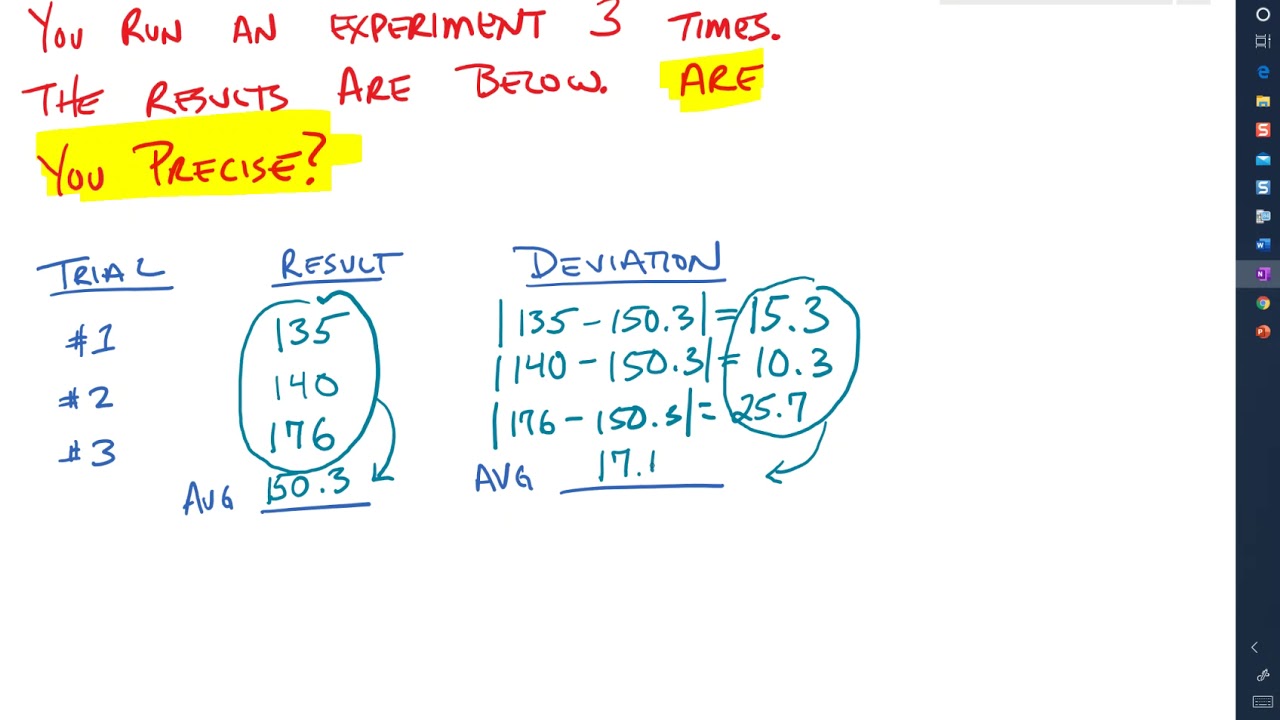 YOU RUN AN EXPERIMENT 3 TIMES.
THE RESULTS ARE BELOW. ARE
YOU PRECISE?
TRIAL RESULT DEVIATION
#1 135 |135 - 150.3| = 15.3
#2 140 |140 - 150.3| = 10.3
#3 176 |176 - 150.3| = 25.7
AVG 150.3 AVG 17.1